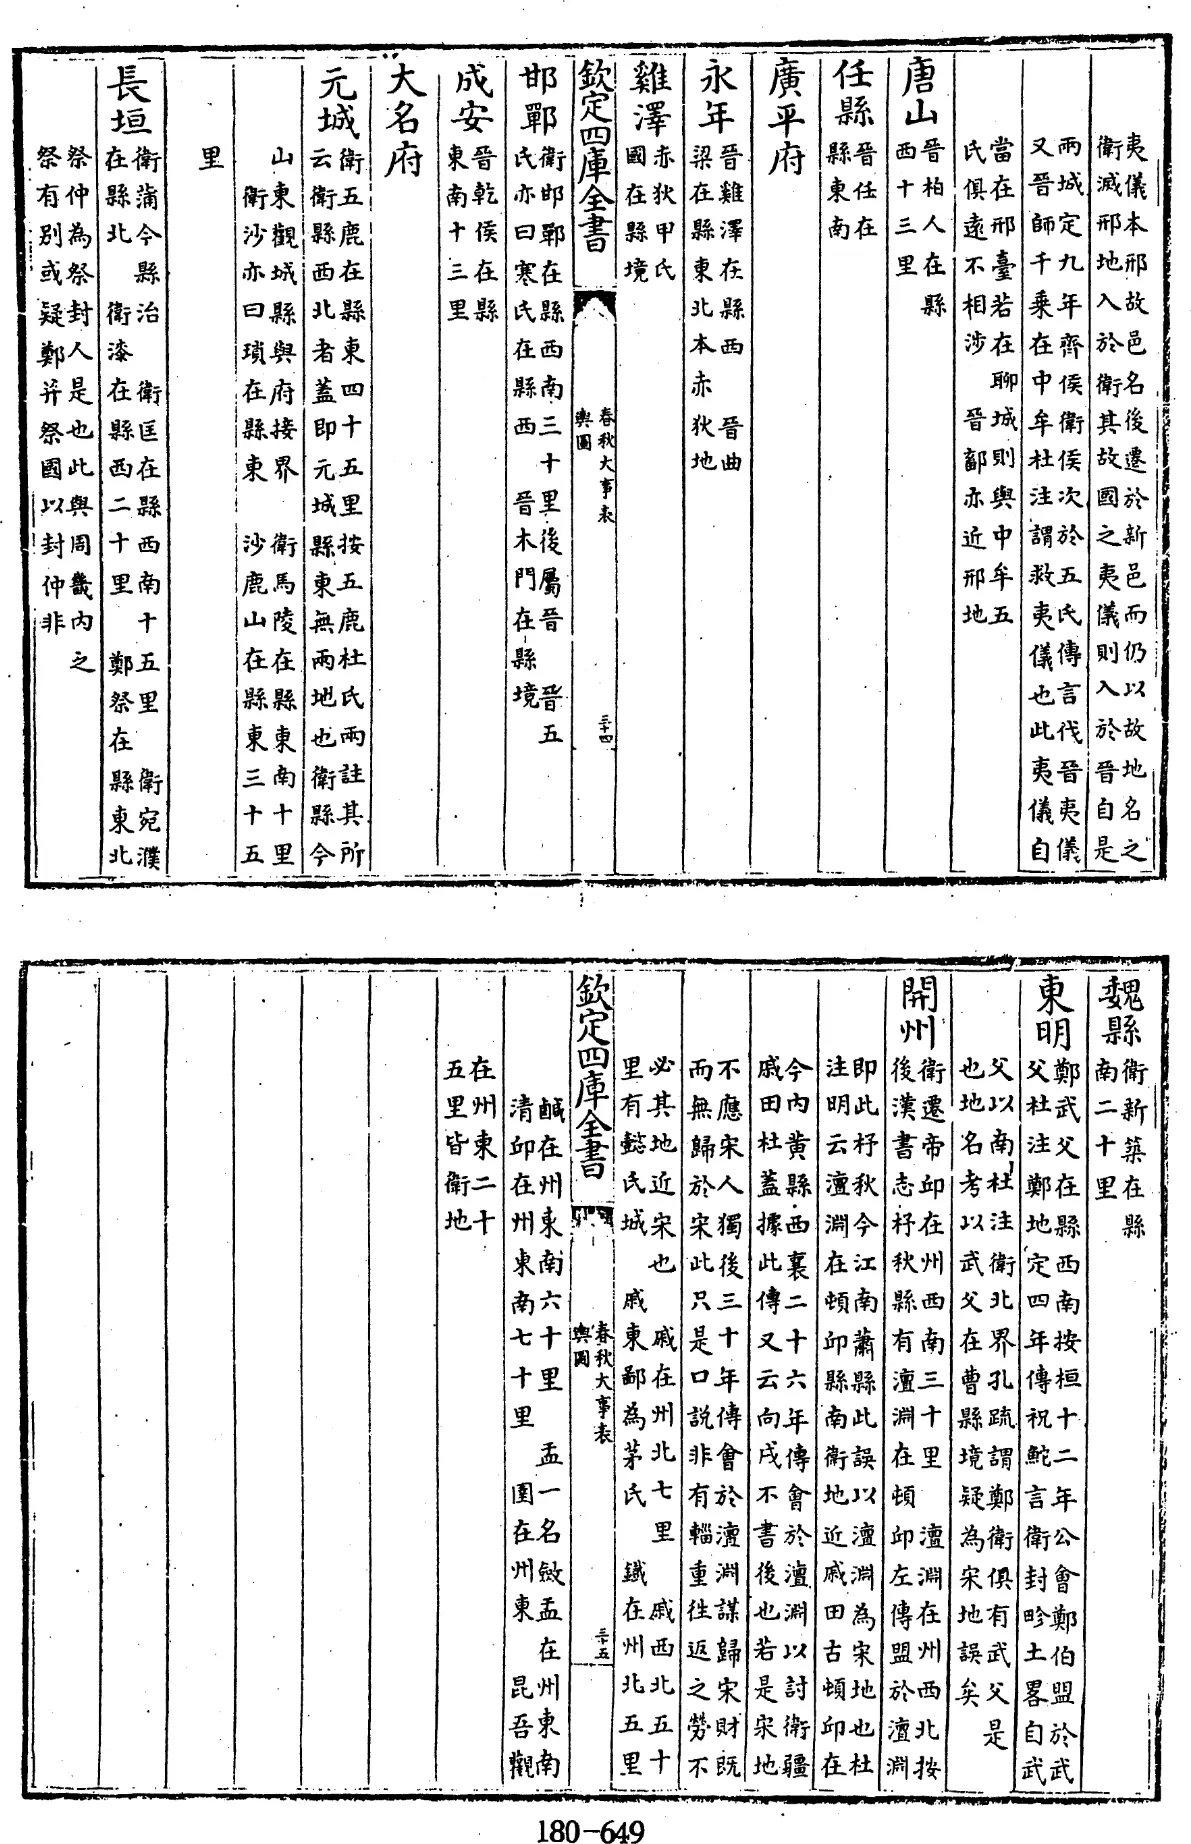 夷儀本邢故邑名後遷於新邑而仍以故地名之
衛滅邢地入於衛其故國之夷儀則入於晉自是
兩城定九年齊侯衛侯次於五氏傳言伐晉夷儀
又晉師千乘在中牟杜注謂救夷儀也此夷儀自
當在邢臺若在聊城則與中牟五
氏俱遠不相涉　晉郚亦近邢地
唐山
晉柏人在縣
西十三里
任縣
晉任在
縣東南
廣平府
永年
晉雞澤在縣西　晉曲
梁在縣東北本赤狄地
雞澤
赤狄甲氏
國在縣境
欽定四庫全書
春秋大事表
輿圖
三十四
邯鄲
衛邯鄲在縣西南三十里後屬晉　晉五
氏亦曰寒氏在縣西　晉木門在縣境
成安
晉乾侯在縣
東南十三里
大名府
元城
衛五鹿在縣東四十五里按五鹿杜氏兩註其所
云衛縣西北者蓋即元城縣東無兩地也衛縣今
山東觀城縣與府接界　衛馬陵在縣東南十里
衛沙亦曰瑣在縣東　沙鹿山在縣東三十五
里
長垣
衛蒲今縣治　衛匡在縣西南十五里　衛宛濮
在縣北　衛漆在縣西二十里　鄭祭在縣東北
祭仲為祭封人是也此與周畿内之
祭有别或疑鄭并祭國以封仲非
魏縣
衛新築在縣
南二十里
東明
鄭武父在縣西南按桓十二年公會鄭伯盟於武
父杜注鄭地定四年傳祝鮀言衛封畛土畧自武
父以南杜注衛北界孔疏謂鄭衛俱有武父是
也地名考以武父在曹縣境疑為宋地誤矣
開州
衛遷帝邱在州西南三十里　澶淵在州西北按
後漢書志杼秋縣有澶淵在頓邱左傳盟於澶淵
即此杼秋今江南蕭縣此誤以澶淵為宋地也杜
注明云澶淵在頓邱縣南衛地近戚田古頓邱在
今内黄縣西襄二十六年傳會於澶淵以討衛疆
戚田杜蓋據此傳又云向戌不書後也若是宋地
不應宋人獨後三十年傳會於澶淵謀歸宋財既
而無歸於宋此只是口說非有輜重往返之勞不
必其地近宋也　戚在州北七里　戚西北五十
里有懿氏城　戚東鄙為茅氏　鐵在州北五里
欽定四庫全書
春秋大事表
輿圖
三十五
鹹在州東南六十里　盂一名斂盂在州東南
清邱在州東南七十里　圉在州東　昆吾觀
在州東二十
五里皆衛地
180-649